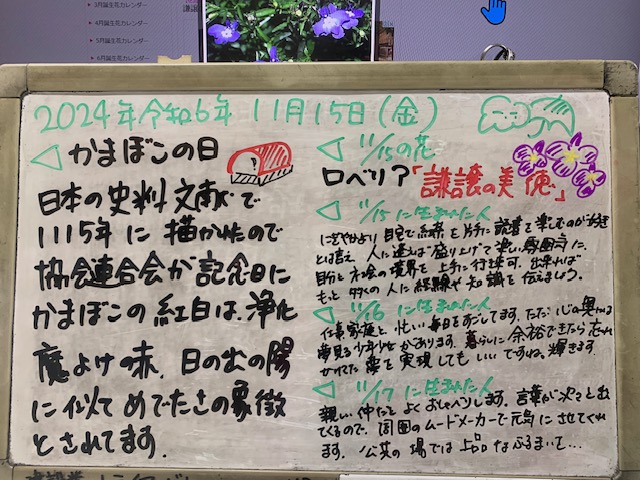 3月誕生花カレンダー
4月誕生花カレンダー
5月誕生花カレンダー
6月誕生花カレンダー
2024年令和6年 11月15日(金)
かまぼこの日
日本の史料文献で
1115年に描かれたので
協会連合会が記念日に
かまぼこの紅白は、浄化
魔よけの赤、日の出の陽
に似てめでたさの象徴
とされてます。
11/15の花
ロベリア「謙譲の美徳」
11/15に生まれた人
にぎやかより自宅で紅茶を片手に読書を楽しむのが好き
とは言え、人に逢えば盛り上げて楽しい雰囲気に、
自分と社会の境界を上手に行き来可、出来れば
もっと多くの人に経験や知識を伝えましょう。
11/16に生まれた人
仕事、家庭と、忙しい毎日をすごしてます。ただ心の奥には
夢見る少年少女があります。暮らしに余裕できたら忘れ
かけてた夢を実現してもいいですね。輝きます
11/17に生まれた人
親しい仲だとよくおしゃべりします。言葉が次々と出
てくるので、周囲のムードメーカーで元気にさせてくれ
ます。公共の場では上品なふるまいで…